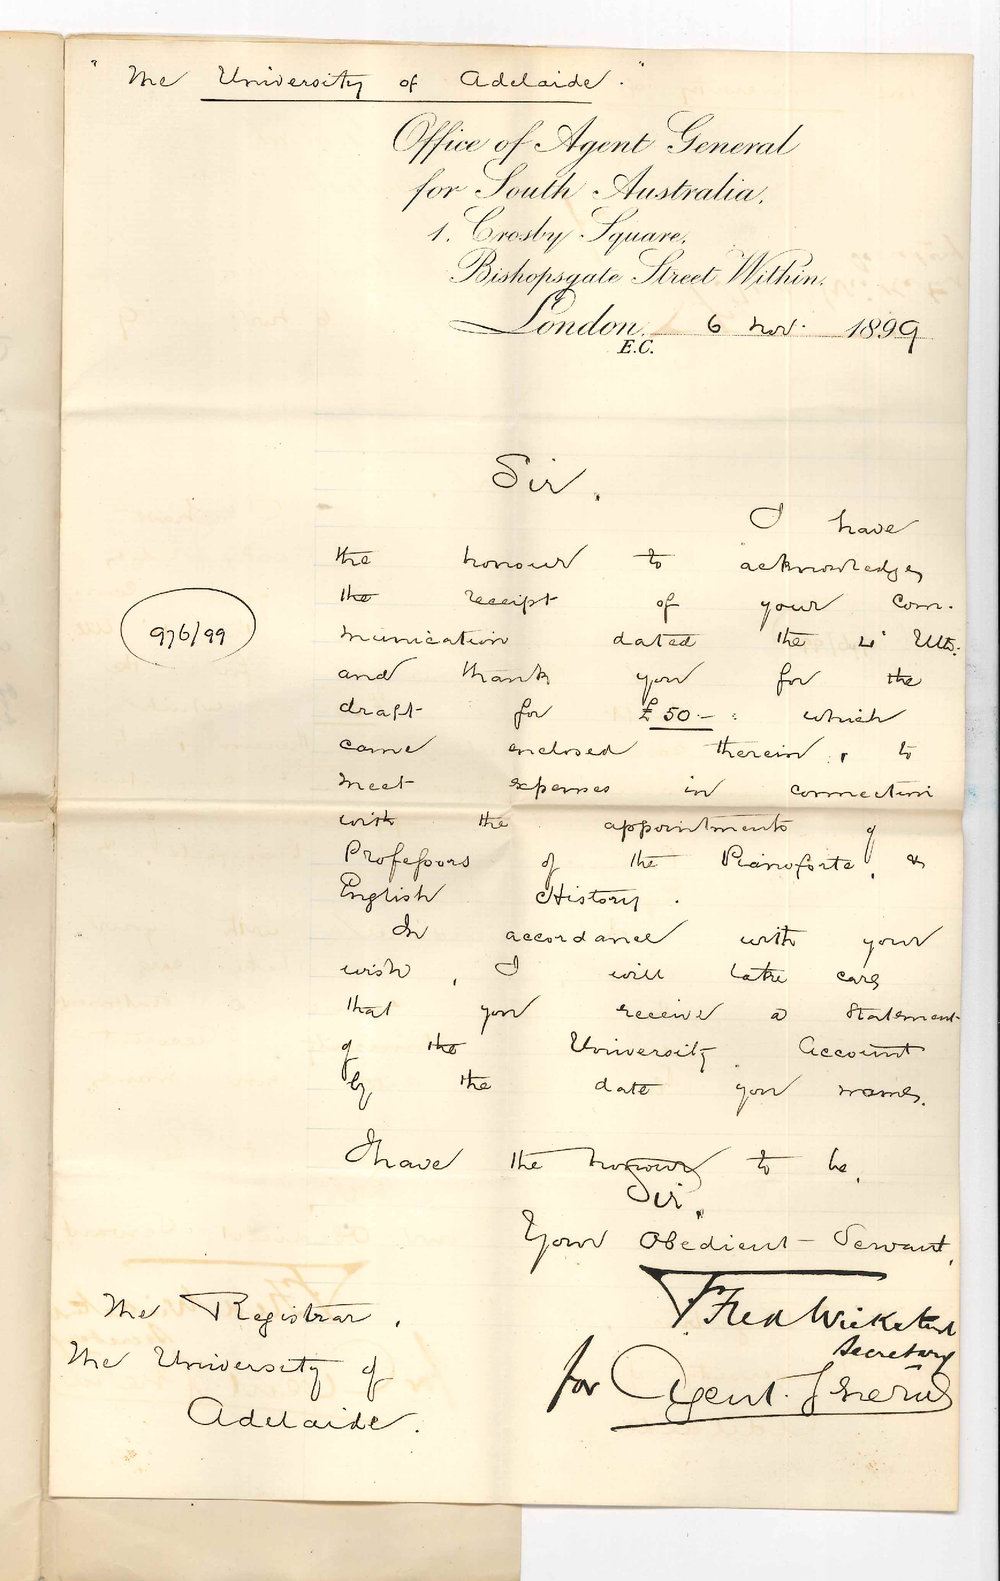 "The University of Adelaide."
Office of Agent General
for South Australia,
1, Crosby Square,
Bishopsgate Street Within,
London, 6 Nov. 1899
E.C.
Sir,
I have
the honour to acknowledge
the receipt of your com-
munication dated the 4' Ulto:
and thank you for the
draft for £50-: which
came enclosed therein, to
meet expenses in connection
with the appointments of
Professors of the Pianoforte, &
English History.
976/99
In accordance with your
wish, I will take care
that you receive a statement
of the University Account
by the date you name.
I have the honour to be,
Sir,
Your Obedient Servant,
Fred
Secretary
for Agent. General
The Registrar,
The University of
Adelaide.